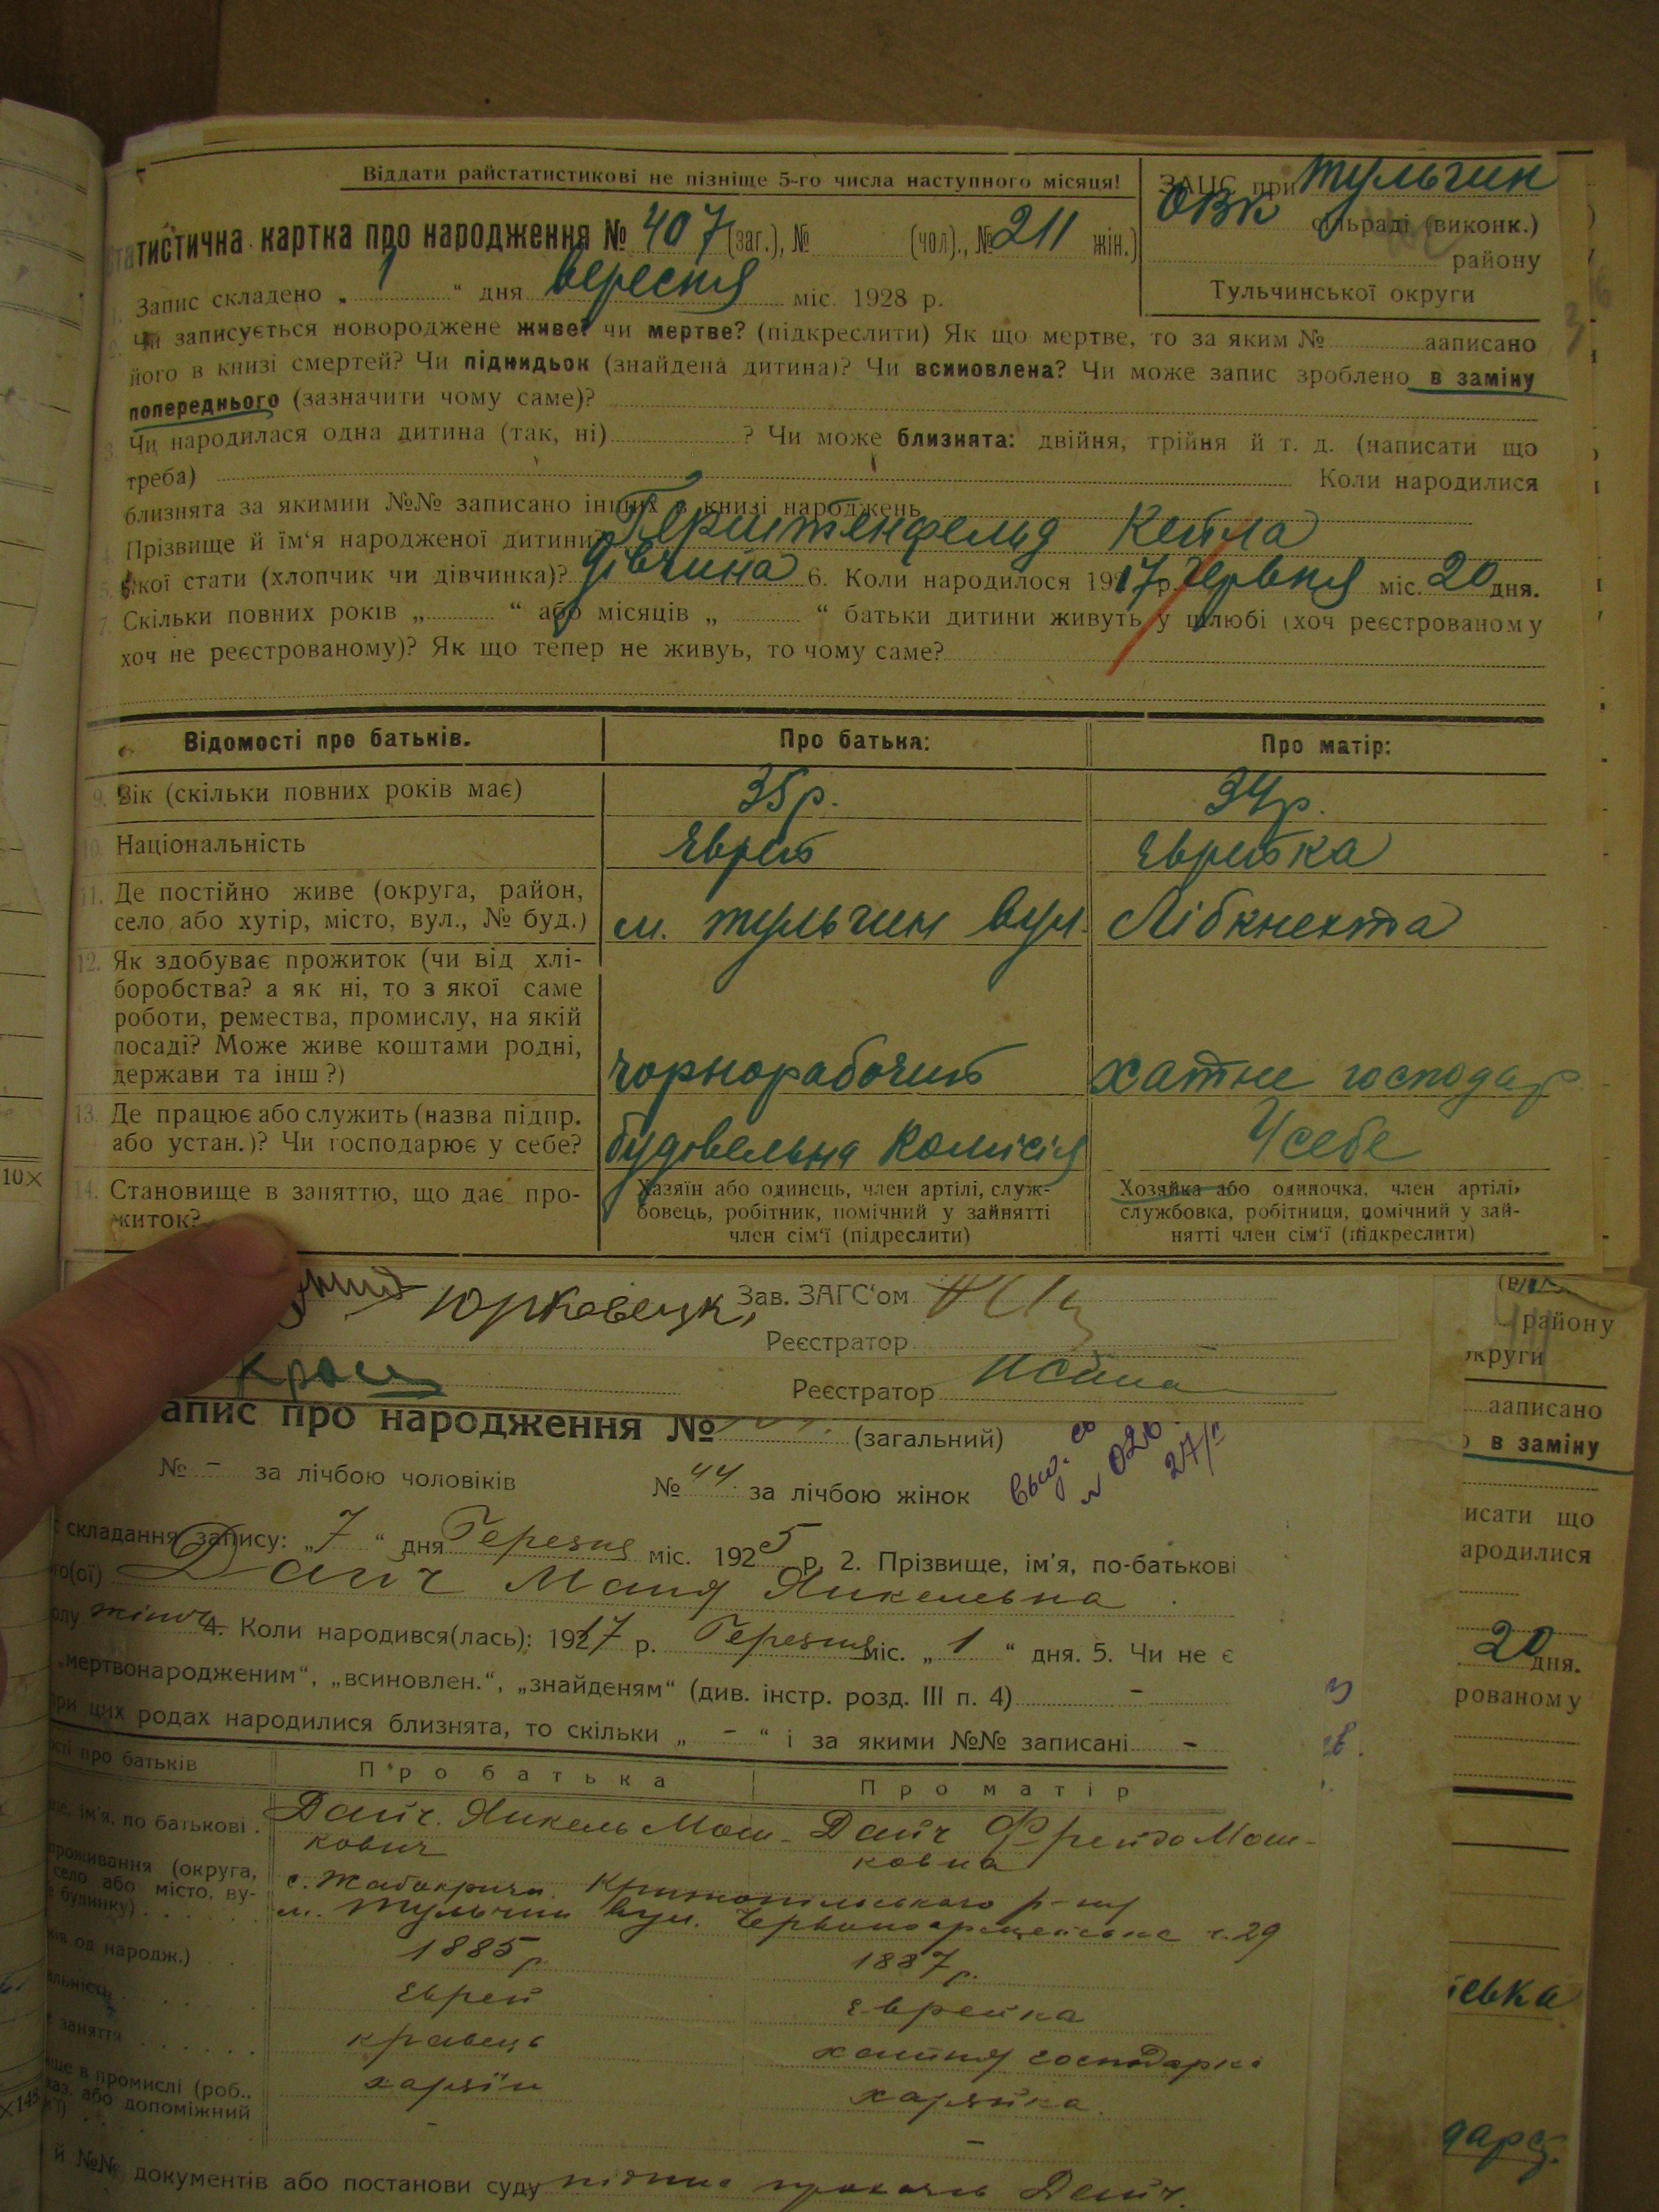 Віддати райстатистикові не пізніще 5-го числа наступного місяця!
ЗАЦС при Тульчин
ОВК сільраді (виконк.)
району
Тульчинської округи
Статистична картка про народження № 407 (заг.), № (чол)., № 211 жін.)
1. Запис складено „ 1 “ дня вересня міс. 1928 р.
2. Чи записується новороджене живе? чи мертве? (підкреслити) Як що мертве, то за яким № записано
його в книзі смертей? Чи підкидьок (знайдена дитина)? Чи всиновлена? Чи може запис зроблено в заміну
попереднього (зазначити чому саме)?
3. Чи народилася одна дитина (так, ні) ? Чи може близнята: двійня, трійня й т. д. (написати що
треба) Коли народилися
близнята за якимии №№ записано інших в книзі народжень
4. Прізвище й їм‘я народженої дитини Герштенфельд Кейла
5. якої стати (хлопчик чи дівчинка)? дівчина 6. Коли народилося 1917 р. Червня міс. 20 дня.
7. Скільки повних років „ “ або місяців „ “ батьки дитини живуть у шлюбі (хоч реєстрованому
хоч не реєстрованому)? Як що тепер не живуь, то чому саме?
Відомості про батьків. Про батька: Про матір:
9. Вік (скільки повних років має) 35 р. 34 р.
10. Національність Яврей Яврейка
11. Де постійно живе (округа, район,
село або хутір, місто, вул., № буд.) м. Тульчин вул. Лібкнехта
12. Як здобуває прожиток (чи від хлі-
боробства? а як ні, то з якої саме
роботи, ремества, промислу, на якій
посаді? Може живе коштами родні,
держави та інш?) чорнорабочий хатне господар
13. Де працює або служить (назва підпр.
або устан.)? Чи господарює у себе? будівельна комісія У себе
14. Становище в заняттю, що дає про-
житок?
Хазяїн або одинець, член артілі, служ-
бовець, робітник, помічний у зайнятті
член сім‘ї (підреслити)
Хозяйка або одиночка, член артілі,
службовка, робітниця, помічний у зай-
нятті член сім‘ї (підкреслити)
10×
Юрковецк Зав. ЗАГС‘ом
Реєстратор
Реєстратор
апис про народження № (загальний)
№ - за лічбою чоловіків № 44 за лічбою жінок
складання запису: „ 7 “ дня Березня міс. 1925 р. 2. Прізвище, ім‘я, по-батькові
го(ої) Дайч Маня Янкелевна
жіноч 4. Коли народився(лась): 1917 р. Березня міс. „ 1 “ дня. 5. Чи не є
„мертвонародженим“, „всиновлен.“, „знайденям“ (див. інстр. розд. III п. 4) -
при цих родах народилися близнята, то скільки „ - “ і за якими №№ записані -
про батьків Про батька Про матір
ім‘я, по батькові Дайч Янкель Мош- Дайч Фрейдо Мош-
кович ковна
проживання (округа,
село або місто, ву-
будинку)
с. Жабокрич Крижопільського р-ну
м. Тульчин вул. Червоноармейська ч. 29
од народж.) 1885 р. 1887 р.
Еврей Еврейка
заняття кравець хатня господарка
в промислі (роб.,
або допоміжний
хазяїн хазяйка
- -
й №№ документів або постанови суду Дайч.
району
округи
записано
в заміну
исати що
ародилися
20 дня.
рованому